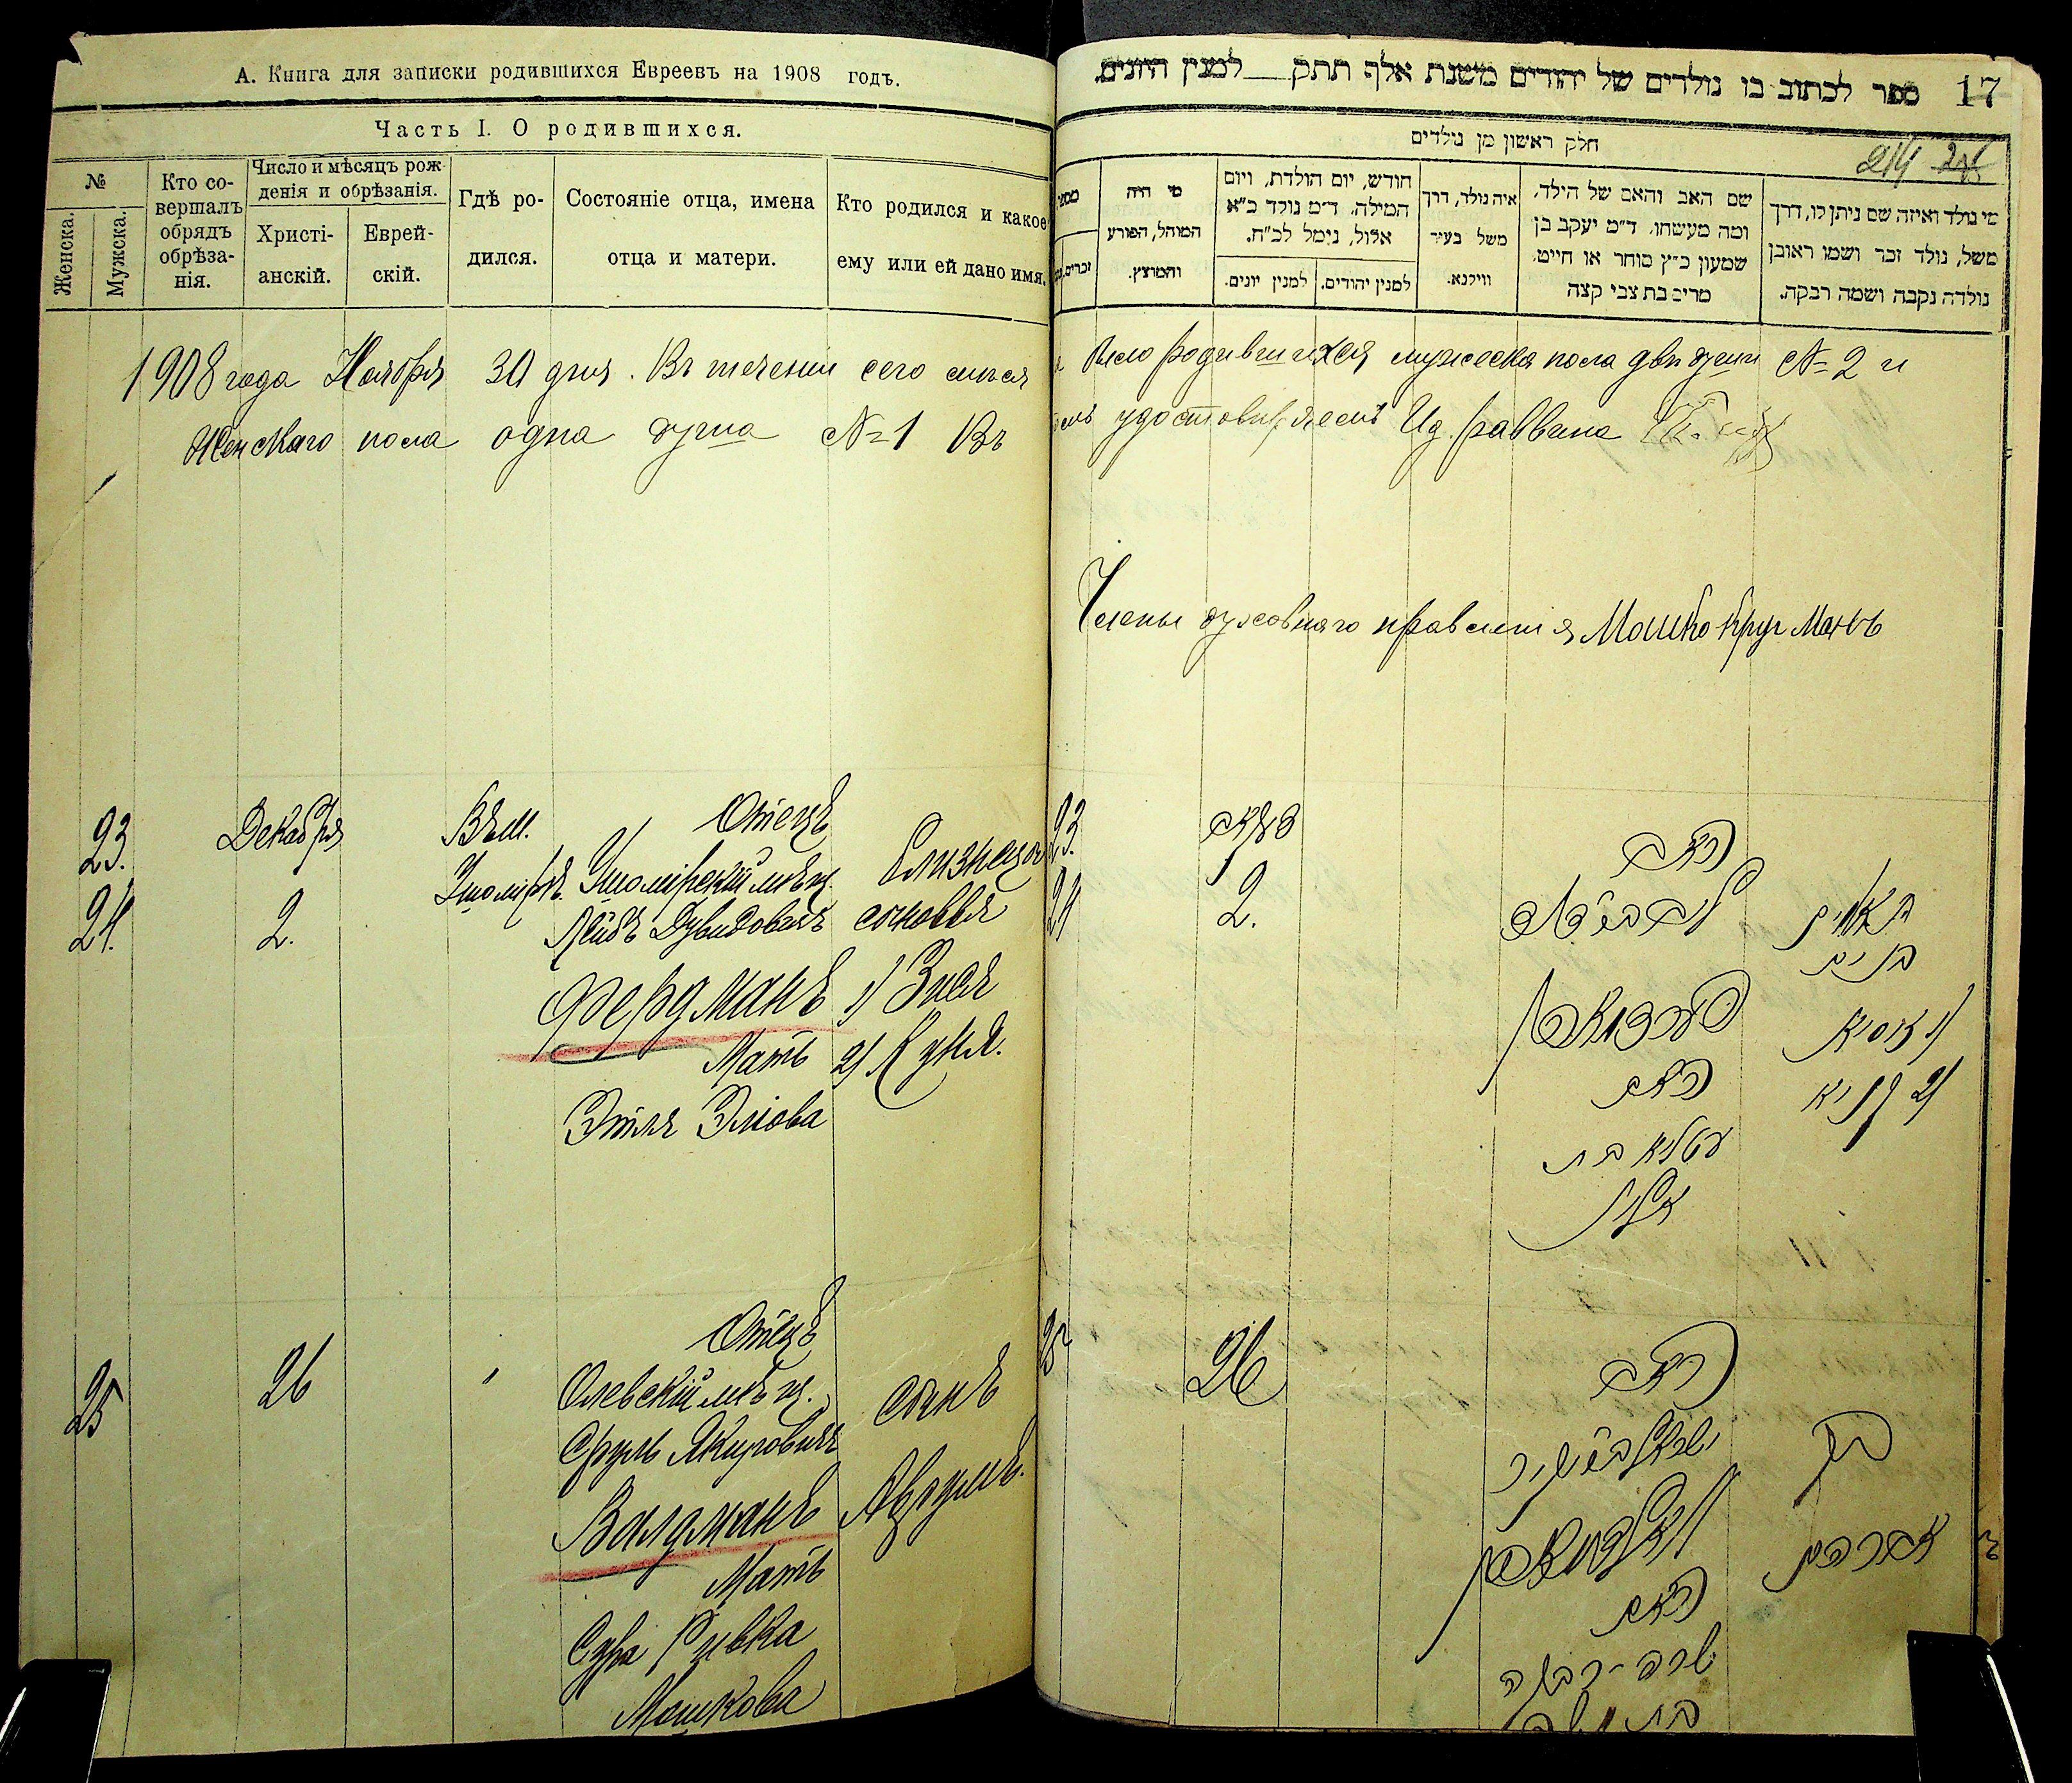 А. Книга для записки родившихся Евреевъ на 1908 годъ.
Часть I. О родившихся.
№
Женска.
Мужска.
Кто со-
вершалъ
обрядъ
обрѣза-
нія.
Число и мѣсяцъ рож-
денія и обрѣзанія.
Христі-
анскій.
Еврей-
скій.
Гдѣ ро-
дился.
Состояніе отца, имена
отца и матери.
Кто родился и какое
ему или ей дано имя.
1908 года Ноября 30 дня. Въ теченіи сего
Женскаго пола одна душа №1 Въ
23.
24.
Декабря
2.
Въ м.
Ушомірѣ.
Отецъ
Ушомірскій мѣщ.
Лейбъ Дувидовичъ
Фердманъ
Мать
Этля Эліова
Близнецы
сыновья
1) Зися
2) Куня.
25
26
"
Отецъ
Олевскій мѣщ.
Сруль Якировичъ
Валдманъ
Мать
Сура Ривка
Мошкова
сынъ
Аврумъ.
ספר לכתוב בו נולדים של יהודים משנת אלף תתק למנין היונים.
17
חלק ראשון מן נולדים
214
מי היה
המוהל, הפורע
והמוצץ.
חודש, יום הולדת, ויום
המילה. ד״מ נולד כ״א
אלול, נימל לכ״ח.
למנין יהודים.
למנין יונים.
איה נולד, דרך
משל בעיר
ווילנא.
שם האב והאם של הילד,
ומה מעשהו. ד״מ יעקב בן
שמעון כ״ץ סוחר או חייט,
מרים בת צבי קצה
מי נולד ואיזה שם ניתן לו, דרך
משל, נולד זכר ושמו ראובן
נולדה נקבה ושמה רבקה.
число родившихся мужеска пола двѣ души №2 и
удостовѣряемъ Ид. раввина
Члены духовнаго правленія Мошко Круг
23.
24
2.
האב
פערדמאן
האם
עטליא בת
תאומים
בנים
1) זוסיא
2) קוניא
25
26
האב
וואלדמאן
האם
שרה-רבקה
בת משה
בן
אברהם